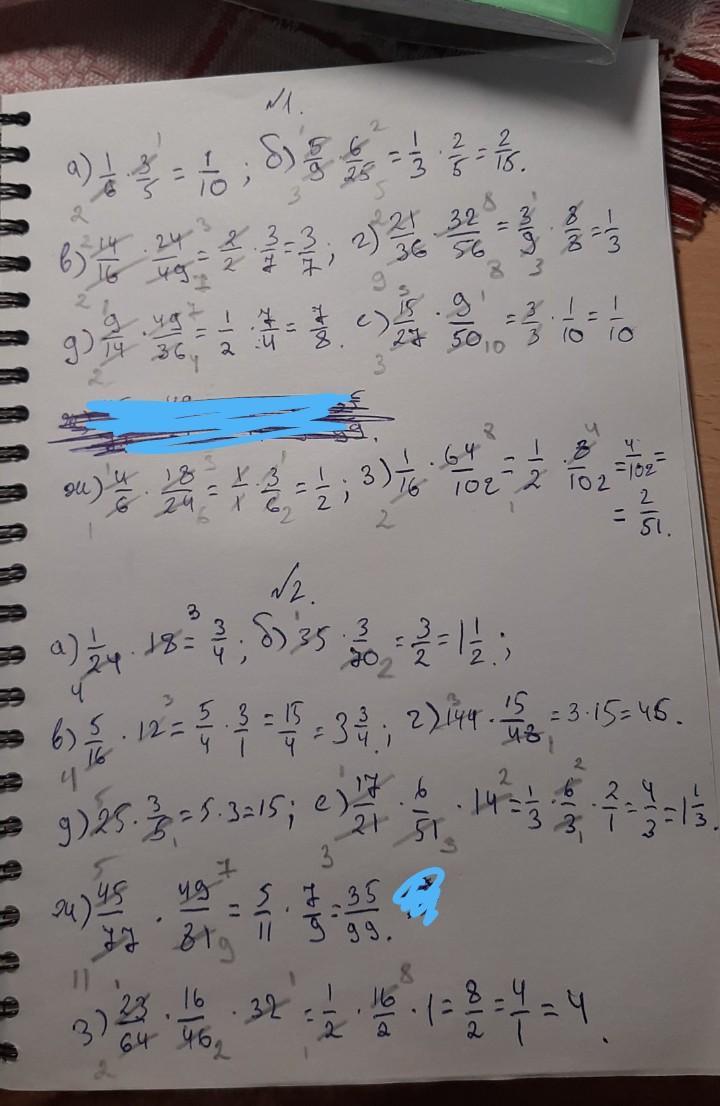 №1.
а) 1/6 · 3/5 = 1/10; б) 5/9 · 6/25 = 1/3 · 2/5 = 2/15.
в) 14/16 · 24/49 = 2/2 · 3/7 = 3/7; г) 21/36 · 32/56 = 3/9 · 8/8 = 1/3
д) 9/14 · 49/36 = 1/2 · 7/4 = 7/8. е) 15/27 · 9/50 = 3/3 · 1/10 = 1/10
ж) 4/6 · 18/24 = 1/1 · 3/6 = 1/2; з) 1/16 · 64/102 = 1/2 · 8/102 = 4/102 =
= 2/51.
№2.
а) 1/24 · 18 = 3/4; б) 35 · 3/70 = 3/2 = 1 1/2.;
в) 5/16 · 12 = 5/4 · 3/1 = 15/4 = 3 3/4.; г) 144 · 15/48 = 3·15=45.
д) 25 · 3/5 = 5·3=15; е) 17/21 · 6/51 · 14 = 1/3 · 6/3 · 2/1 = 4/3 = 1 1/3.
ж) 45/77 · 49/81 = 5/11 · 7/9 = 35/99.
з) 23/64 · 16/46 · 32 = 1/2 · 16/2 · 1 = 8/2 = 4/1 = 4.